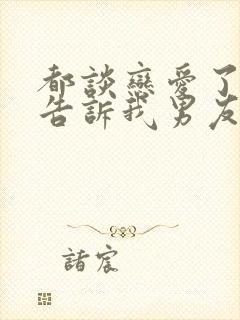 都談戀愛了
告訴我男友
諸宸